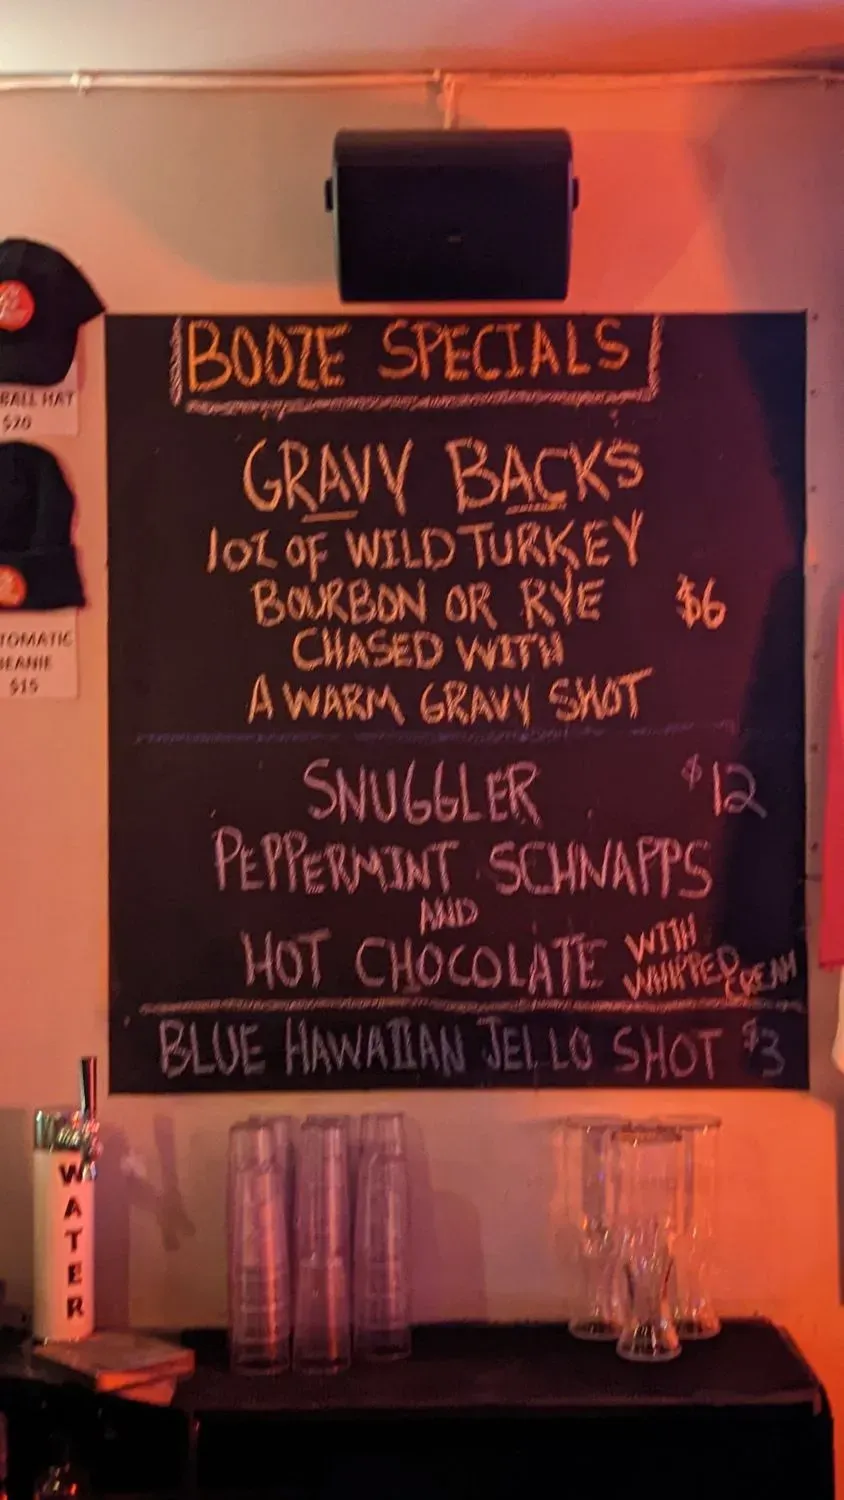 BOOZE SPECIALS
GRAVY BACKS
1OZ OF WILD TURKEY
BOURBON OR RYE $6
CHASED WITH
A WARM GRAVY SHOT
SNUGGLER $12
PEPPERMINT SCHNAPPS
AND
HOT CHOCOLATE WITH WHIPPED CREAM
BLUE HAWAIIAN JELLO SHOT $3
HAT
$20
$15
WATER